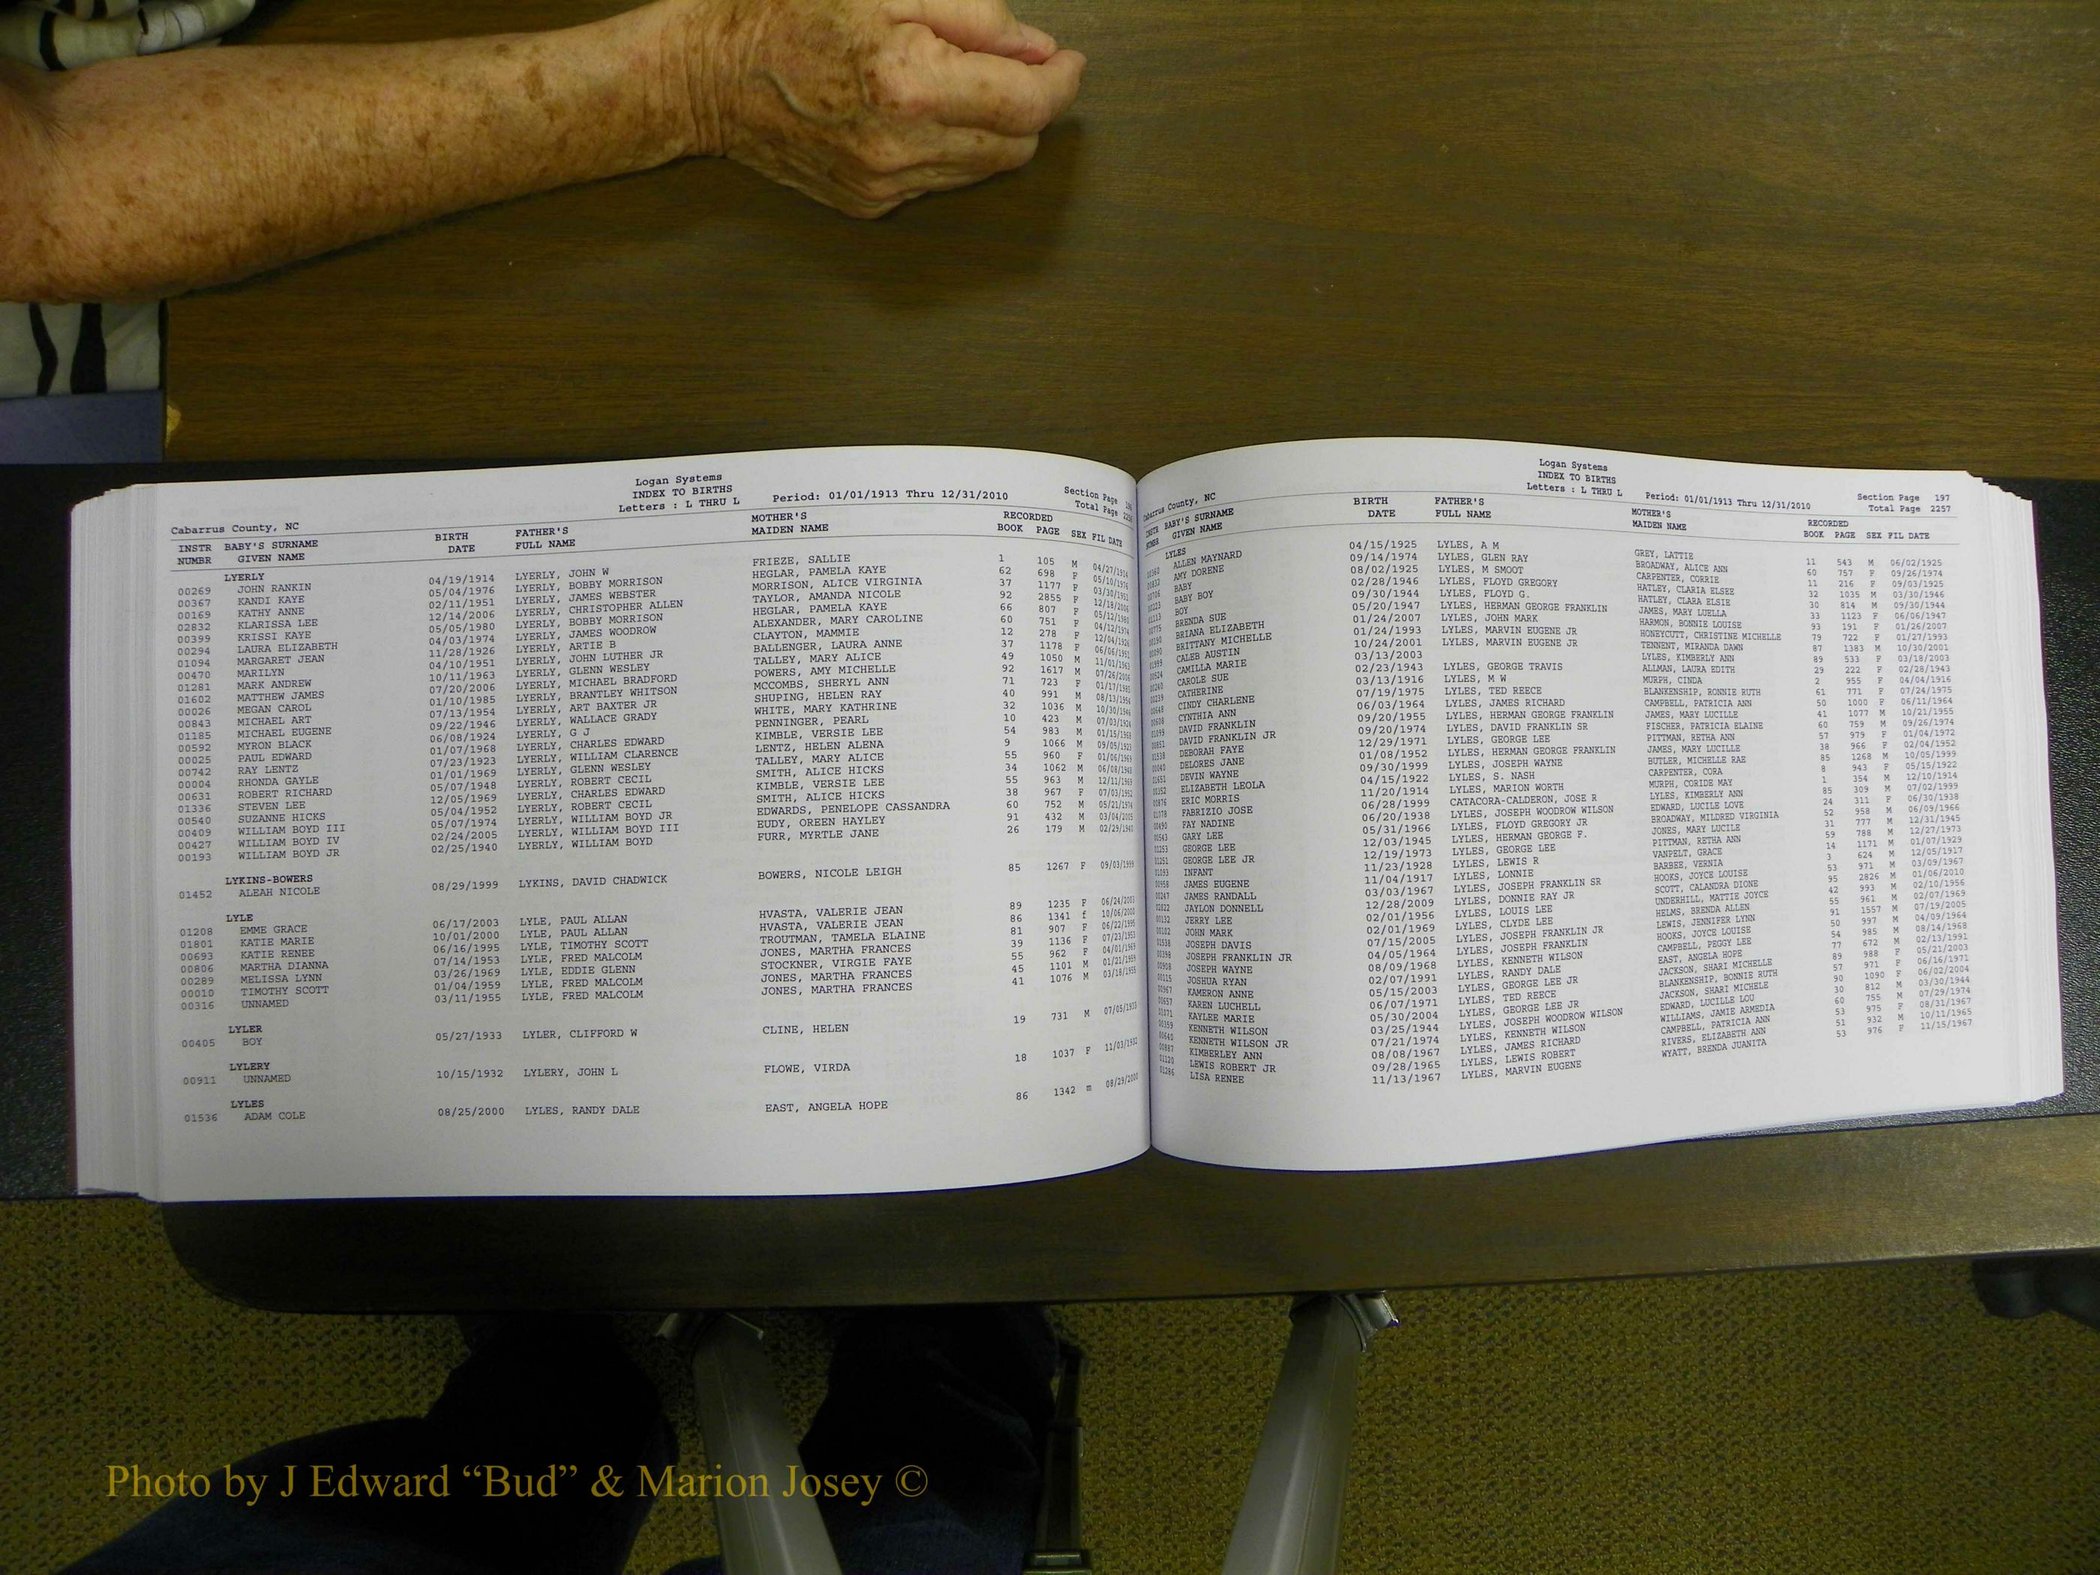 Logan Systems
INDEX TO BIRTHS
Letters : L THRU L
Cabarrus County, NC Period: 01/01/1913 Thru 12/31/2010 Section Page
Total Page
INSTR BABY'S SURNAME BIRTH FATHER'S MOTHER'S RECORDED
NUMBR GIVEN NAME DATE FULL NAME MAIDEN NAME BOOK PAGE SEX FIL DATE
LYERLY
00269 JOHN RANKIN 04/19/1914 LYERLY, JOHN W FRIEZE, SALLIE 1 105 M 04/27/1914
00367 KANDI KAYE 05/04/1976 LYERLY, BOBBY MORRISON HEGLAR, PAMELA KAYE 62 698 F 05/10/1976
00169 KATHY ANNE 02/11/1951 LYERLY, JAMES WEBSTER MORRISON, ALICE VIRGINIA 37 1177 F 03/30/1951
02832 KLARISSA LEE 12/14/2006 LYERLY, CHRISTOPHER ALLEN TAYLOR, AMANDA NICOLE 92 2855 F 12/18/2006
00399 KRISSI KAYE 05/05/1980 LYERLY, BOBBY MORRISON HEGLAR, PAMELA KAYE 66 807 F 05/12/1980
00294 LAURA ELIZABETH 04/03/1974 LYERLY, JAMES WOODROW ALEXANDER, MARY CAROLINE 60 751 F 04/12/1974
01094 MARGARET JEAN 11/28/1926 LYERLY, ARTIE B CLAYTON, MAMMIE 12 278 F 12/04/1926
00470 MARILYN 04/10/1951 LYERLY, JOHN LUTHER JR BALLENGER, LAURA ANNE 37 1178 F 06/06/1951
01281 MARK ANDREW 10/11/1963 LYERLY, GLENN WESLEY TALLEY, MARY ALICE 49 1050 M 11/01/1963
01602 MATTHEW JAMES 07/20/2006 LYERLY, MICHAEL BRADFORD POWERS, AMY MICHELLE 92 1617 M 07/26/2006
00026 MEGAN CAROL 01/10/1985 LYERLY, BRANTLEY WHITSON MCCOMBS, SHERYL ANN 71 723 F 01/17/1985
00843 MICHAEL ART 07/13/1954 LYERLY, ART BAXTER JR SHUPING, HELEN RAY 40 991 M 08/13/1954
01185 MICHAEL EUGENE 09/22/1946 LYERLY, WALLACE GRADY WHITE, MARY KATHRINE 32 1036 M 10/30/1946
00592 MYRON BLACK 06/08/1924 LYERLY, G J PENNINGER, PEARL 10 423 M 07/03/1924
00025 PAUL EDWARD 01/07/1968 LYERLY, CHARLES EDWARD KIMBLE, VERSIE LEE 54 983 M 01/15/1968
00742 RAY LENTZ 07/23/1923 LYERLY, WILLIAM CLARENCE LENTZ, HELEN ALENA 9 1066 M 09/05/1923
00004 RHONDA GAYLE 01/01/1969 LYERLY, GLENN WESLEY TALLEY, MARY ALICE 55 960 F 01/06/1969
00631 ROBERT RICHARD 05/07/1948 LYERLY, ROBERT CECIL SMITH, ALICE HICKS 34 1062 M 06/08/1948
01336 STEVEN LEE 12/05/1969 LYERLY, CHARLES EDWARD KIMBLE, VERSIE LEE 55 963 M 12/11/1969
00540 SUZANNE HICKS 05/04/1952 LYERLY, ROBERT CECIL SMITH, ALICE HICKS 38 967 F 07/03/1952
00409 WILLIAM BOYD III 05/07/1974 LYERLY, WILLIAM BOYD JR EDWARDS, PENELOPE CASSANDRA 60 752 M 05/21/1974
00427 WILLIAM BOYD IV 02/24/2005 LYERLY, WILLIAM BOYD III EUDY, OREEN HAYLEY 91 432 M 03/04/2005
00193 WILLIAM BOYD JR 02/25/1940 LYERLY, WILLIAM BOYD FURR, MYRTLE JANE 26 179 M 02/29/1940
LYKINS-BOWERS
01452 ALEAH NICOLE 08/29/1999 LYKINS, DAVID CHADWICK BOWERS, NICOLE LEIGH 85 1267 F 09/03/1999
LYLE
01208 EMME GRACE 06/17/2003 LYLE, PAUL ALLAN HVASTA, VALERIE JEAN 89 1235 F 06/24/2003
01801 KATIE MARIE 10/01/2000 LYLE, PAUL ALLAN HVASTA, VALERIE JEAN 86 1341 f 10/06/2000
00693 KATIE RENEE 06/16/1995 LYLE, TIMOTHY SCOTT TROUTMAN, TAMELA ELAINE 81 907 F 06/22/1995
00806 MARTHA DIANNA 07/14/1953 LYLE, FRED MALCOLM JONES, MARTHA FRANCES 39 1136 F 07/23/1953
00289 MELISSA LYNN 03/26/1969 LYLE, EDDIE GLENN STOCKNER, VIRGIE FAYE 55 962 F 04/01/1969
00010 TIMOTHY SCOTT 01/04/1959 LYLE, FRED MALCOLM JONES, MARTHA FRANCES 45 1101 M 01/21/1959
00316 UNNAMED 03/11/1955 LYLE, FRED MALCOLM JONES, MARTHA FRANCES 41 1076 M 03/18/1955
LYLER
00405 BOY 05/27/1933 LYLER, CLIFFORD W CLINE, HELEN 19 731 M 07/05/1933
LYLERY
00911 UNNAMED 10/15/1932 LYLERY, JOHN L FLOWE, VIRDA 18 1037 F 11/03/1932
LYLES
01536 ADAM COLE 08/25/2000 LYLES, RANDY DALE EAST, ANGELA HOPE 86 1342 m 08/29/2000
Logan Systems
INDEX TO BIRTHS
Letters : L THRU L
Cabarrus County, NC Period: 01/01/1913 Thru 12/31/2010 Section Page 197
Total Page 2257
INSTR BABY'S SURNAME BIRTH FATHER'S MOTHER'S RECORDED
NUMBR GIVEN NAME DATE FULL NAME MAIDEN NAME BOOK PAGE SEX FIL DATE
LYLES
ALLEN MAYNARD 04/15/1925 LYLES, A M GREY, LATTIE 11 543 M 06/02/1925
AMY DORENE 09/14/1974 LYLES, GLEN RAY BROADWAY, ALICE ANN 60 757 F 09/26/1974
BABY 08/02/1925 LYLES, M SMOOT CARPENTER, CORRIE 11 216 F 09/03/1925
BABY BOY 02/28/1946 LYLES, FLOYD GREGORY HATLEY, CLARIA ELSEE 32 1035 M 03/30/1946
BOY 09/30/1944 LYLES, FLOYD G. HATLEY, CLARA ELSIE 30 814 M 09/30/1944
BRENDA SUE 05/20/1947 LYLES, HERMAN GEORGE FRANKLIN JAMES, MARY LUELLA 33 1123 F 06/06/1947
BRIANA ELIZABETH 01/24/2007 LYLES, JOHN MARK HARMON, BONNIE LOUISE 93 191 F 01/26/2007
BRITTANY MICHELLE 01/24/1993 LYLES, MARVIN EUGENE JR HONEYCUTT, CHRISTINE MICHELLE 79 722 F 01/27/1993
CALEB AUSTIN 10/24/2001 LYLES, MARVIN EUGENE JR TENNENT, MIRANDA DAWN 87 1383 M 10/30/2001
CAMILLA MARIE 03/13/2003 LYLES, KIMBERLY ANN 89 533 F 03/18/2003
CAROLE SUE 02/23/1943 LYLES, GEORGE TRAVIS ALLMAN, LAURA EDITH 29 222 F 02/28/1943
CATHERINE 03/13/1916 LYLES, M W MURPH, CINDA 2 955 F 04/04/1916
CINDY CHARLENE 07/19/1975 LYLES, TED REECE BLANKENSHIP, RONNIE RUTH 61 771 F 07/24/1975
CYNTHIA ANN 06/03/1964 LYLES, JAMES RICHARD CAMPBELL, PATRICIA ANN 50 1000 F 06/11/1964
DAVID FRANKLIN 09/20/1955 LYLES, HERMAN GEORGE FRANKLIN JAMES, MARY LUCILLE 41 1077 M 10/21/1955
DAVID FRANKLIN JR 09/20/1974 LYLES, DAVID FRANKLIN SR FISCHER, PATRICIA ELAINE 60 759 M 09/26/1974
DEBORAH FAYE 12/29/1971 LYLES, GEORGE LEE PITTMAN, RETHA ANN 57 979 F 01/04/1972
DELORES JANE 01/08/1952 LYLES, HERMAN GEORGE FRANKLIN JAMES, MARY LUCILLE 38 966 F 02/04/1952
DEVIN WAYNE 09/30/1999 LYLES, JOSEPH WAYNE BUTLER, MICHELLE RAE 85 1268 M 10/05/1999
ELIZABETH LEOLA 04/15/1922 LYLES, S. NASH CARPENTER, CORA 8 943 F 05/15/1922
ERIC MORRIS 11/20/1914 LYLES, MARION WORTH MURPH, CORIDE MAY 1 354 M 12/10/1914
FABRIZIO JOSE 06/28/1999 CATACORA-CALDERON, JOSE R LYLES, KIMBERLY ANN 85 309 M 07/02/1999
FAY NADINE 06/20/1938 LYLES, JOSEPH WOODROW WILSON EDWARD, LUCILE LOVE 24 311 F 06/30/1938
GARY LEE 05/31/1966 LYLES, FLOYD GREGORY JR BROADWAY, MILDRED VIRGINIA 52 958 M 06/09/1966
GEORGE LEE 12/03/1945 LYLES, HERMAN GEORGE F. JONES, MARY LUCILE 31 777 M 12/31/1945
GEORGE LEE JR 12/19/1973 LYLES, GEORGE LEE PITTMAN, RETHA ANN 59 788 M 12/27/1973
INFANT 11/23/1928 LYLES, LEWIS R VANPELT, GRACE 14 1171 M 01/07/1929
JAMES EUGENE 11/04/1917 LYLES, LONNIE BARBEE, VERNIA 3 624 M 12/05/1917
JAMES RANDALL 03/03/1967 LYLES, JOSEPH FRANKLIN SR HOOKS, JOYCE LOUISE 53 971 M 03/09/1967
JAYLON DONNELL 12/28/2009 LYLES, DONNIE RAY JR SCOTT, CALANDRA DIONE 95 2826 M 01/06/2010
JERRY LEE 02/01/1956 LYLES, LOUIS LEE UNDERHILL, MATTIE JOYCE 42 993 M 02/10/1956
JOHN MARK 02/01/1969 LYLES, CLYDE LEE HELMS, BRENDA ALLEN 55 961 M 02/07/1969
JOSEPH DAVIS 07/15/2005 LYLES, JOSEPH FRANKLIN JR LEWIS, JENNIFER LYNN 91 1557 M 07/19/2005
JOSEPH FRANKLIN JR 04/05/1964 LYLES, JOSEPH FRANKLIN HOOKS, JOYCE LOUISE 50 997 M 04/09/1964
JOSEPH WAYNE 08/09/1968 LYLES, KENNETH WILSON CAMPBELL, PEGGY LEE 54 985 M 08/14/1968
JOSHUA RYAN 02/07/1991 LYLES, RANDY DALE EAST, ANGELA HOPE 77 672 M 02/13/1991
KAMERON ANNE 05/15/2003 LYLES, GEORGE LEE JR JACKSON, SHARI MICHELLE 89 988 F 05/21/2003
KAREN LUCHELL 06/07/1971 LYLES, TED REECE BLANKENSHIP, BONNIE RUTH 57 971 F 06/16/1971
KAYLEE MARIE 05/30/2004 LYLES, GEORGE LEE JR JACKSON, SHARI MICHELE 90 1090 F 06/02/2004
KENNETH WILSON 03/25/1944 LYLES, JOSEPH WOODROW WILSON EDWARD, LUCILLE LOU 30 812 M 03/30/1944
KENNETH WILSON JR 07/21/1974 LYLES, KENNETH WILSON WILLIAMS, JAMIE ARMEDIA 60 755 M 07/29/1974
KIMBERLEY ANN 08/08/1967 LYLES, JAMES RICHARD CAMPBELL, PATRICIA ANN 53 975 F 08/31/1967
LEWIS ROBERT JR 09/28/1965 LYLES, LEWIS ROBERT RIVERS, ELIZABETH ANN 51 932 M 10/11/1965
LISA RENEE 11/13/1967 LYLES, MARVIN EUGENE WYATT, BRENDA JUANITA 53 976 F 11/15/1967
Photo by J Edward “Bud” & Marion Josey ©